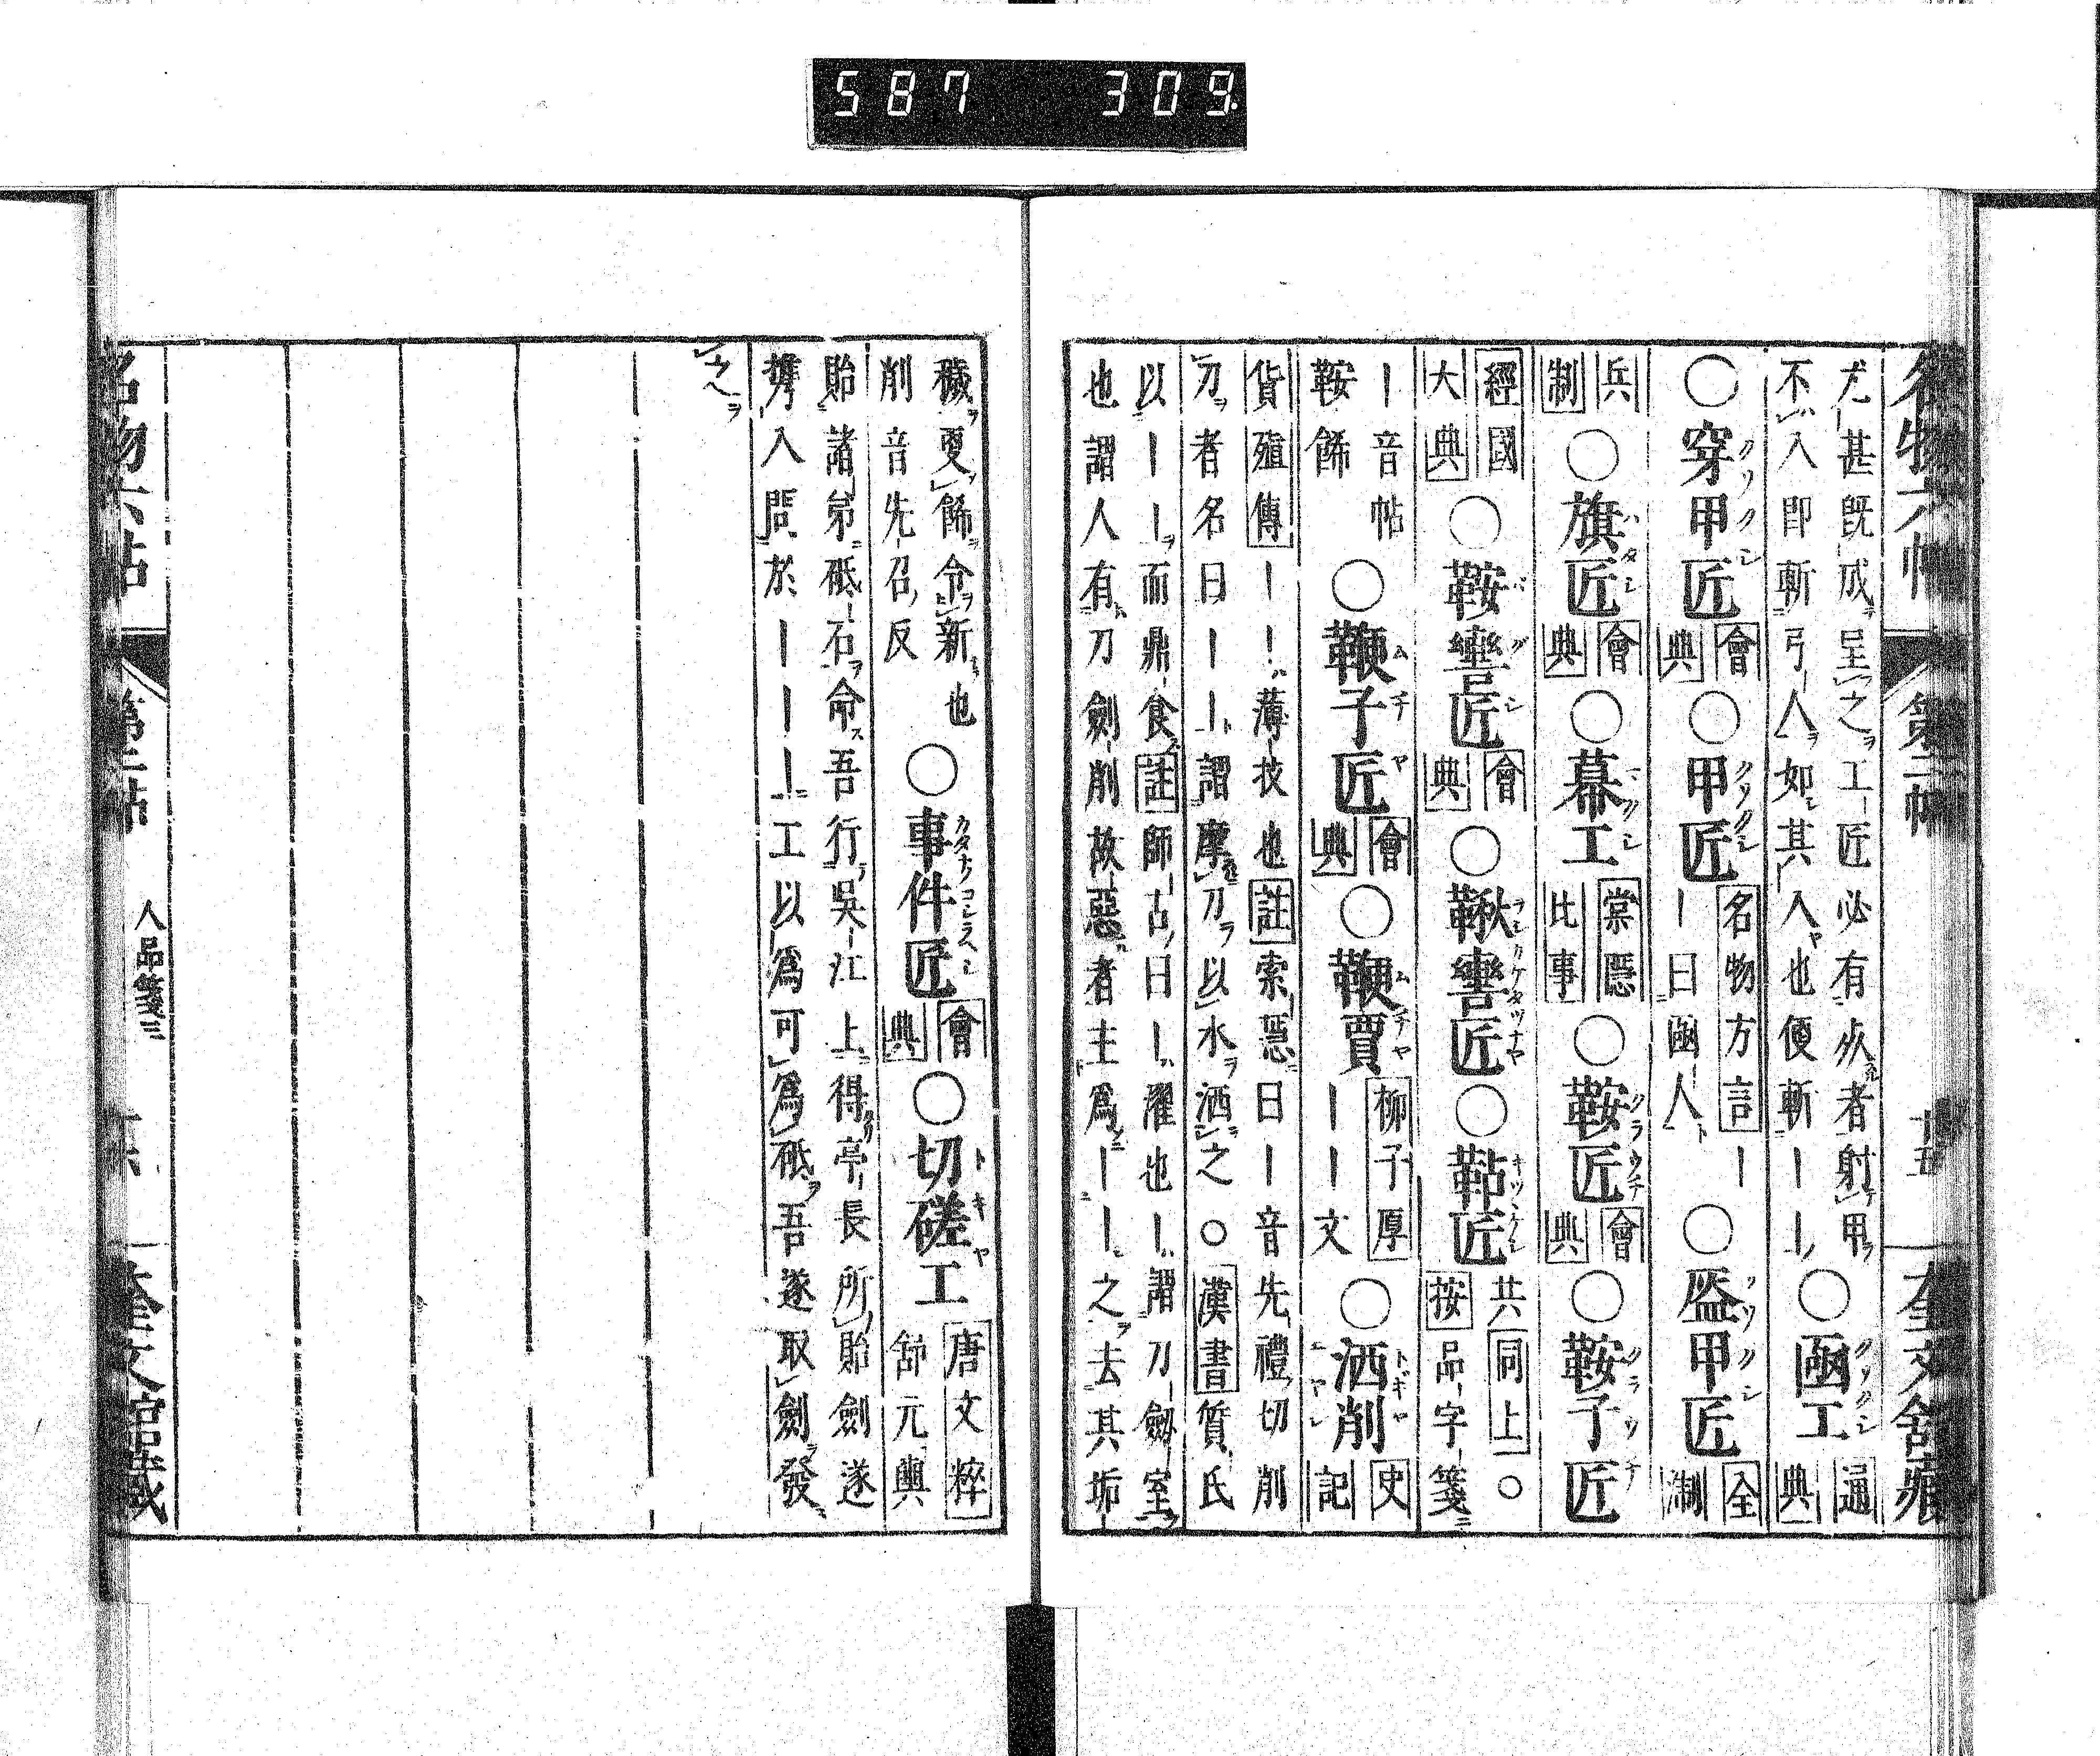 587 309.
名物六帖 第二帖 十五 奎文舘藏
尤甚既成呈之工匠必有死者射甲
不入即斬弓人如其入也便斬｜｜ ○函工 通典
○穿甲匠 會典 ○甲匠 名物方言｜
｜曰函人 ○盔甲匠 全淛
兵制 ○旗匠 會典 ○幕工 棠陰比事 ○鞍匠 會典 ○鞍子匠
經國大典 ○鞍轡匠 會典 ○鞦轡匠 ○鞊匠 共同上○按品字箋
｜音帖
鞍飾 ○鞭子匠 會典 ○鞭賈 柳子厚｜｜文 ○洒削 史記
貨殖傳｜｜薄技也註索隱曰｜音先禮切削
刀者名曰｜｜謂摩刀以水洒之○漢書質氏
以｜｜而鼎食註師古曰｜濯也｜謂刀劔室
也謂人有刀劔削故惡者主爲｜｜之去其垢
穢更飾令新也
削音先召反 ○事件匠 會典 ○切磋工 唐文粹舒元輿
貽諸弟砥石命吾行吳江上得亭長所貽劍遂
攜入問於｜｜｜工以爲可爲砥吾遂取劍發
之
名物六帖 第二帖 人品箋三 奎文舘藏